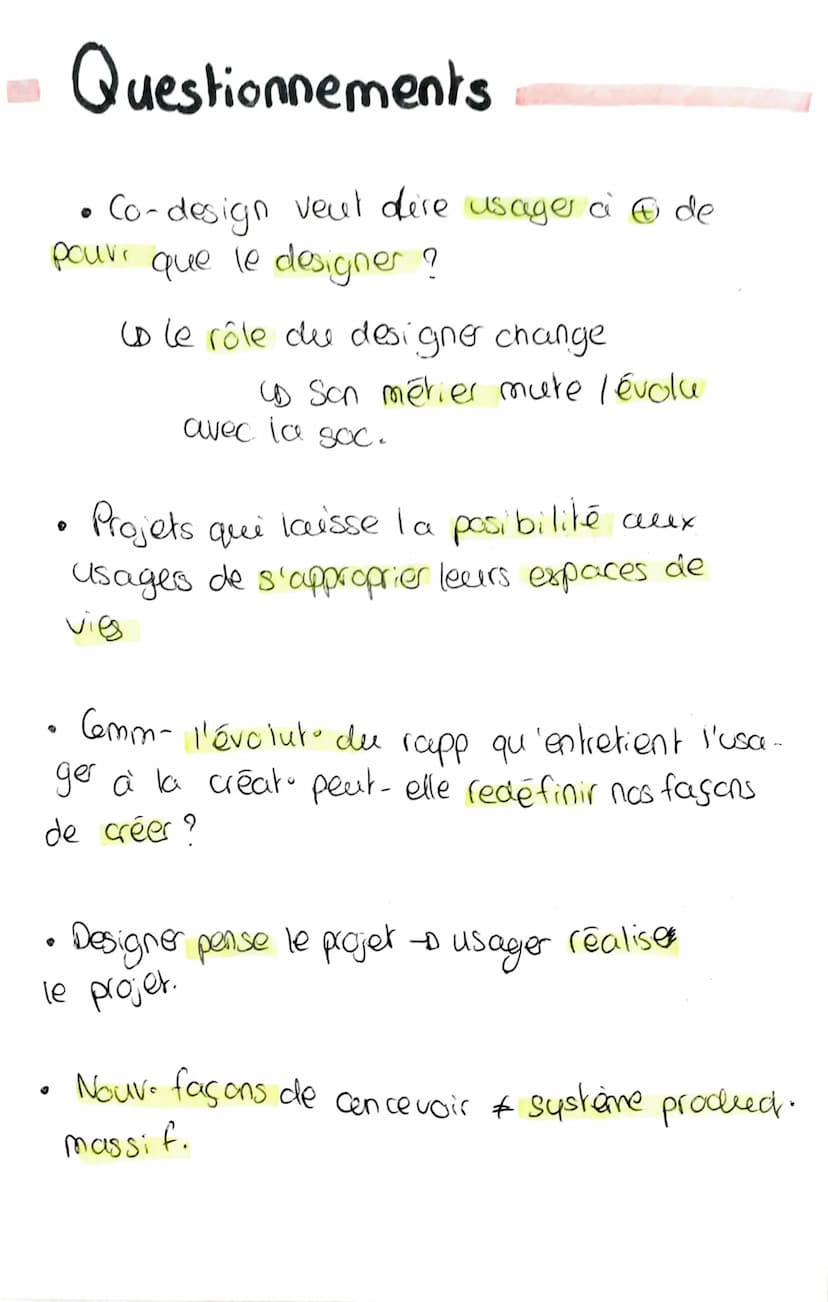 Questionnements
• Co-design veut dire usager à ⊕ de
pouvr que le designer ?
↳ le rôle du designer change
↳ Son métier mute / évolu
avec la soc.
• Projets qui laisse la posibilité aux
usagers de s'approprier leurs espaces de
vies
• Comm- l'évolut° du rapp qu'entretient l'usa-
ger à la créat° peut-elle redéfinir nos façons
de créer ?
• Designer pense le projet → usager réalise
le projet.
• Nouv. façons de concevoir ≠ système product.
massif.